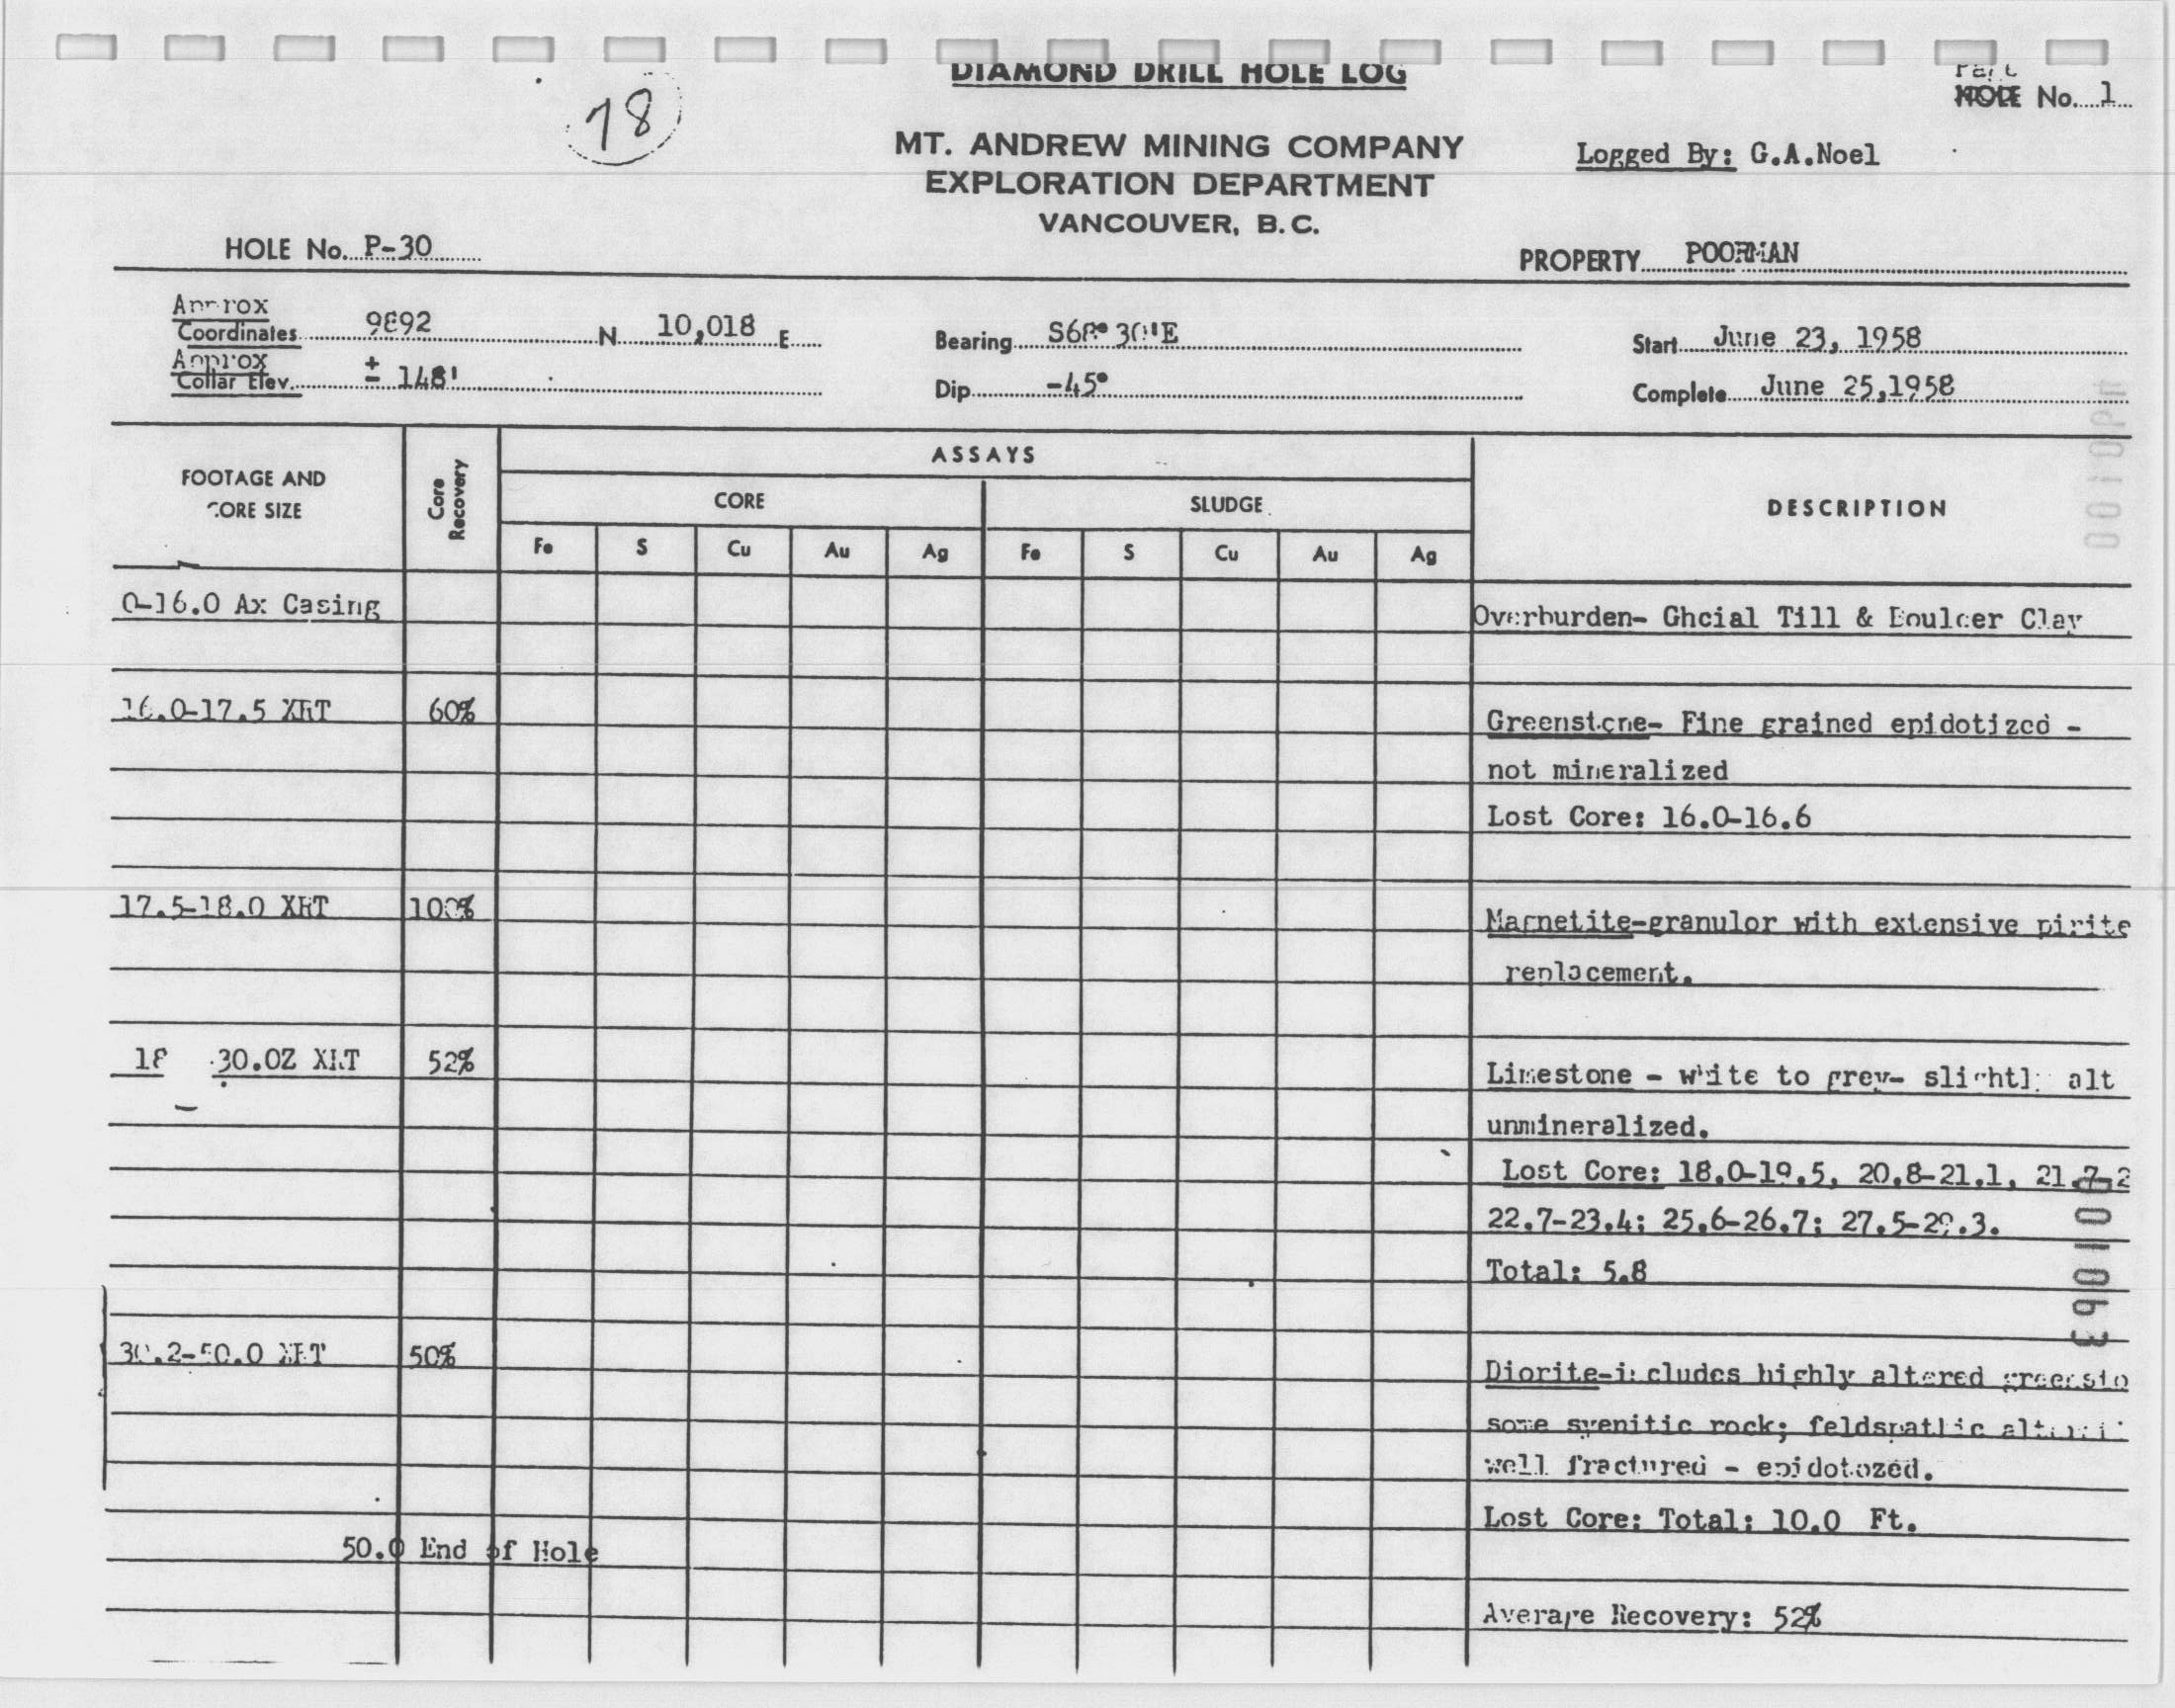 DIAMOND DRILL HOLE LOG
78
HOLE No. 1
MT. ANDREW MINING COMPANY
Logged By: G.A.Noel
EXPLORATION DEPARTMENT
VANCOUVER, B.C.
HOLE No. P-30
PROPERTY POORMAN
Approx
Coordinates 9892 N 10,018 E
Bearing 30'E
Start June 23, 1958
Approx
Collar Elev. ± 148'
Dip -45°
Complete June 25,1958
FOOTAGE AND CORE SIZE
Core Recovery
ASSAYS
CORE
SLUDGE
DESCRIPTION
Fe S Cu Au Ag Fe S Cu Au Ag
0-16.0 Ax Casing
Overburden- Ghcial Till & Boulder Clay
16.0-17.5 XRT 60%
Greenstone- Fine grained epidotized -
not mineralized
Lost Core: 16.0-16.6
17.5-18.0 XRT 100%
Magnetite-granulor with extensive pirite
replacement.
18 30.0Z XRT 52%
Limestone - white to grey- slightly alt
unmineralized.
Lost Core: 18.0-19.5, 20.8-21.1, 21.7-2
22.7-23.4; 25.6-26.7; 27.5-29.3.
Total: 5.8
30.2-50.0 XRT 50%
Diorite-includes highly altered greensto
some syenitic rock; feldspathic
well fractured - epidotozed.
Lost Core: Total: 10.0 Ft.
50.0 End of Hole
Average Recovery: 52%
001063